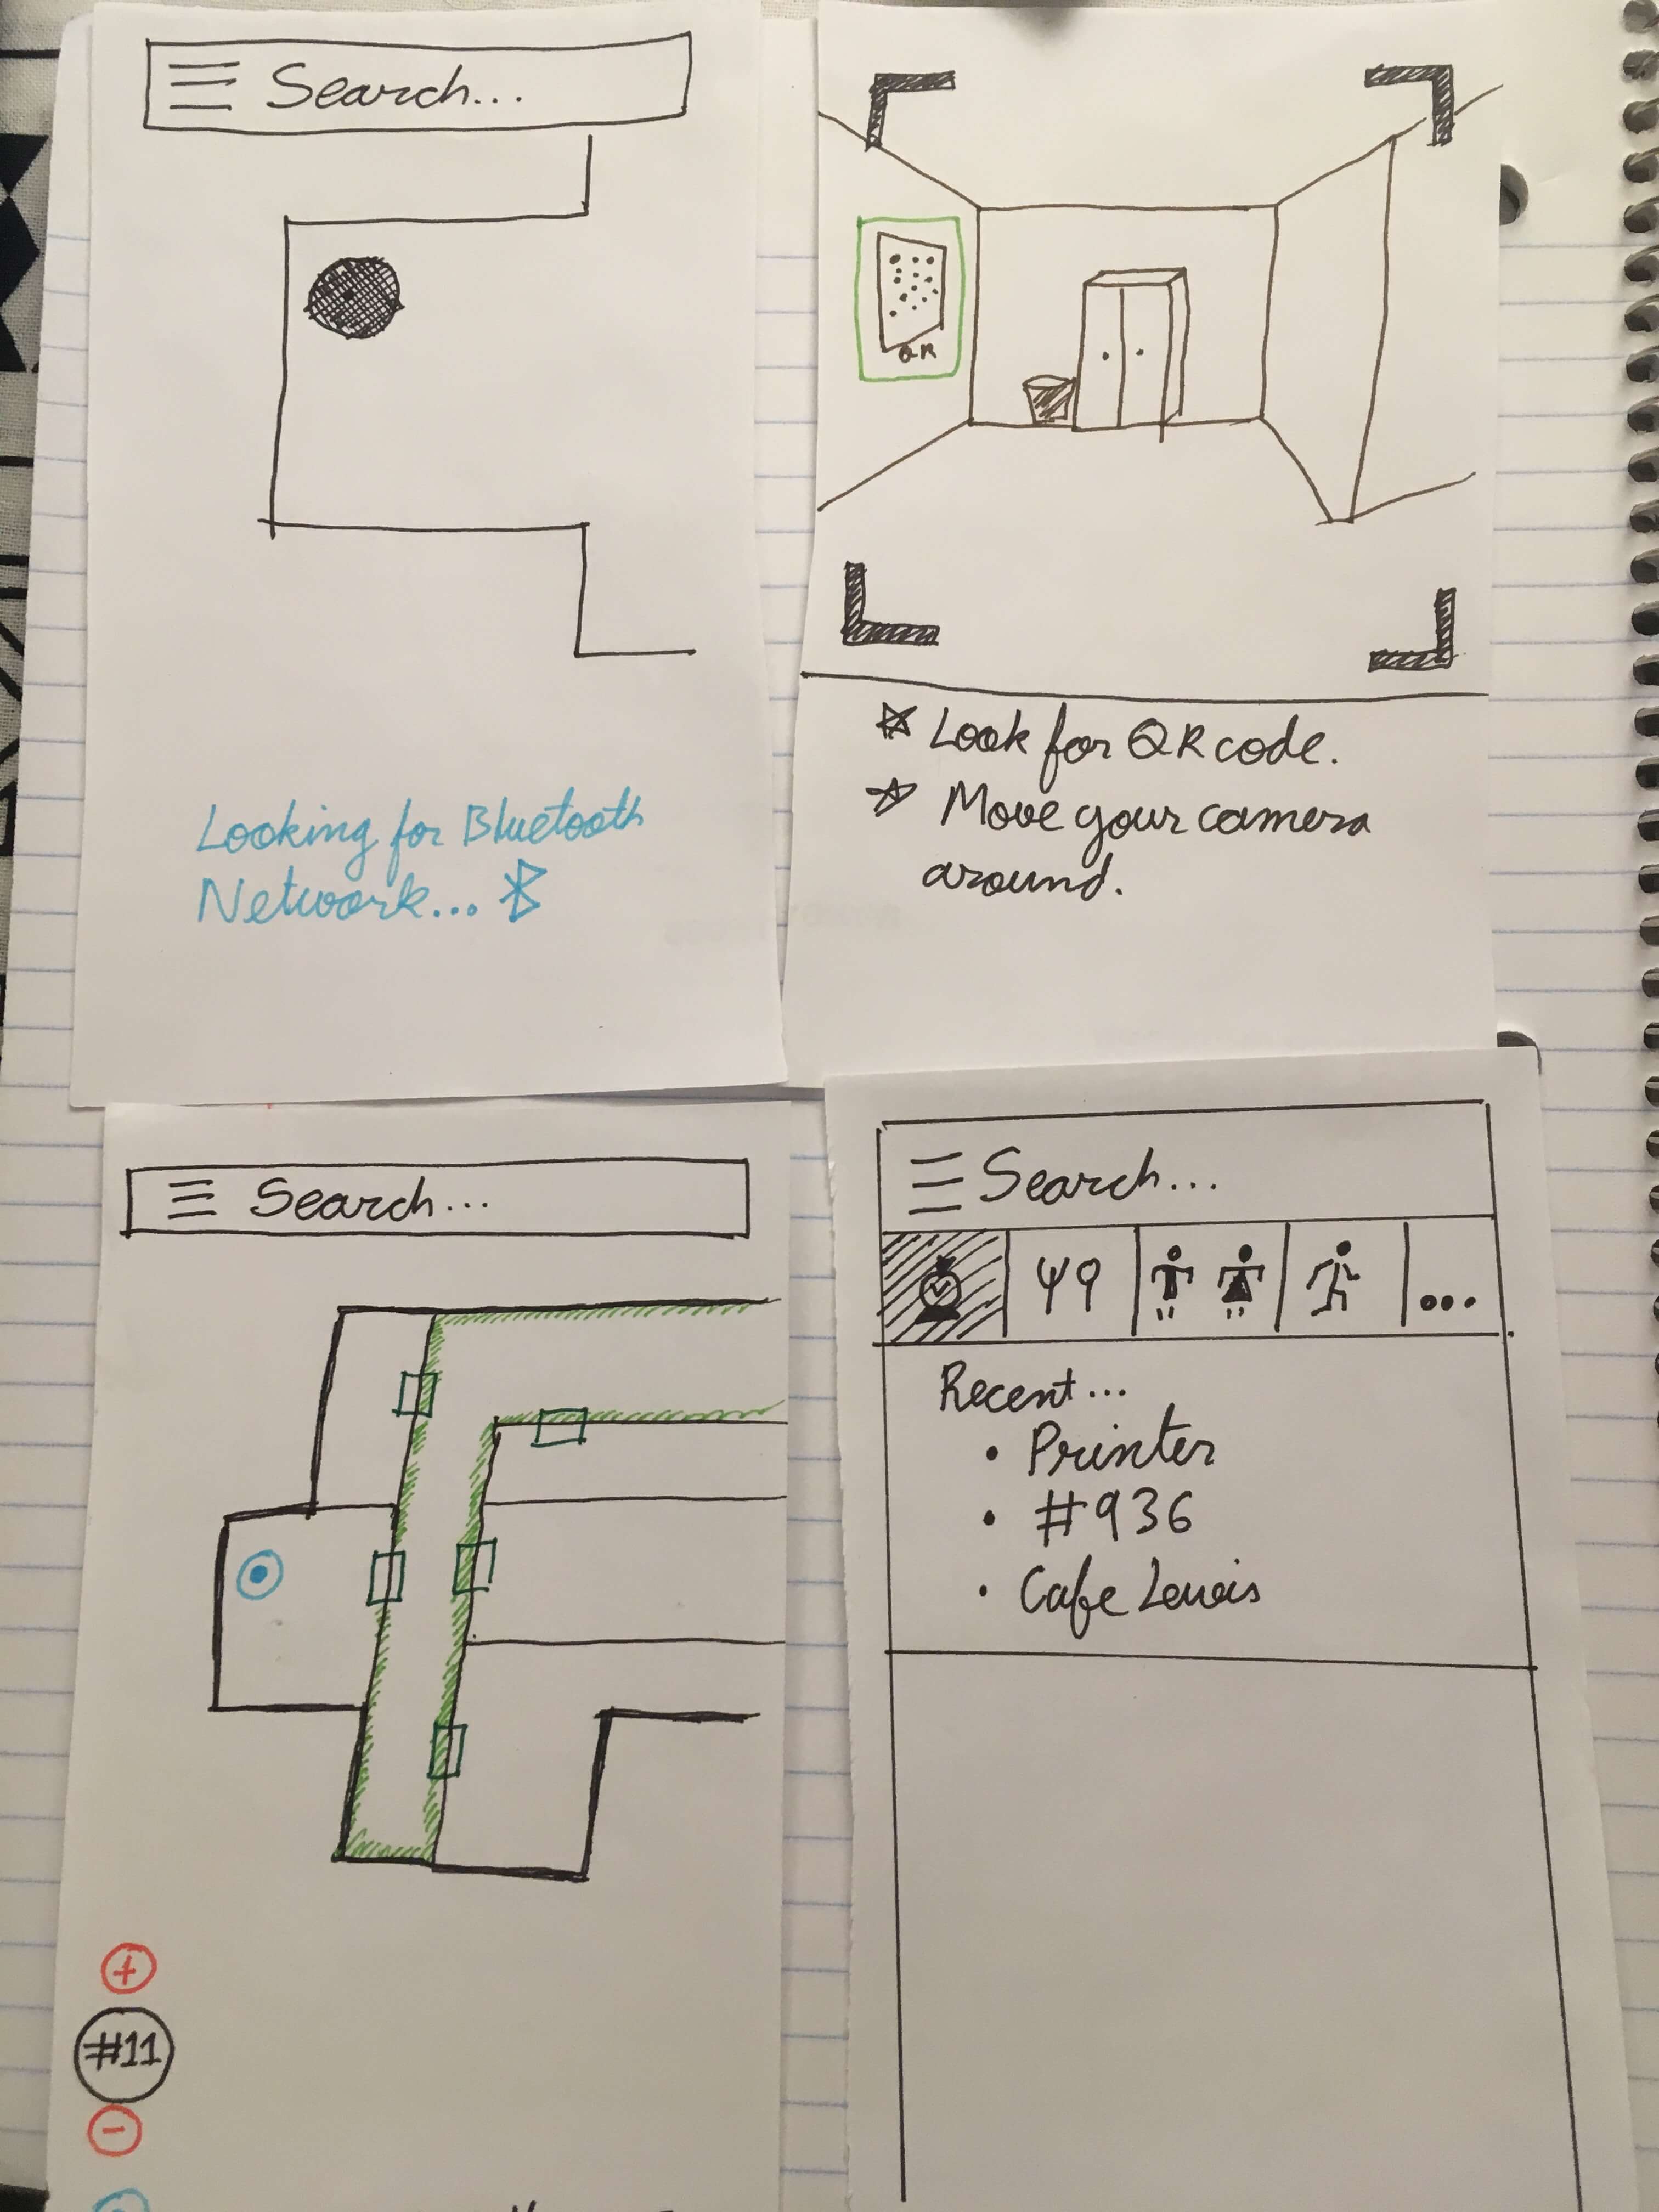 Search...
Looking for Bluetooth
Network...
QR
* Look for QR code.
* Move your camera
around.
Search...
+
#11
-
Search...
...
Recent...
• Printer
• #936
• Cafe